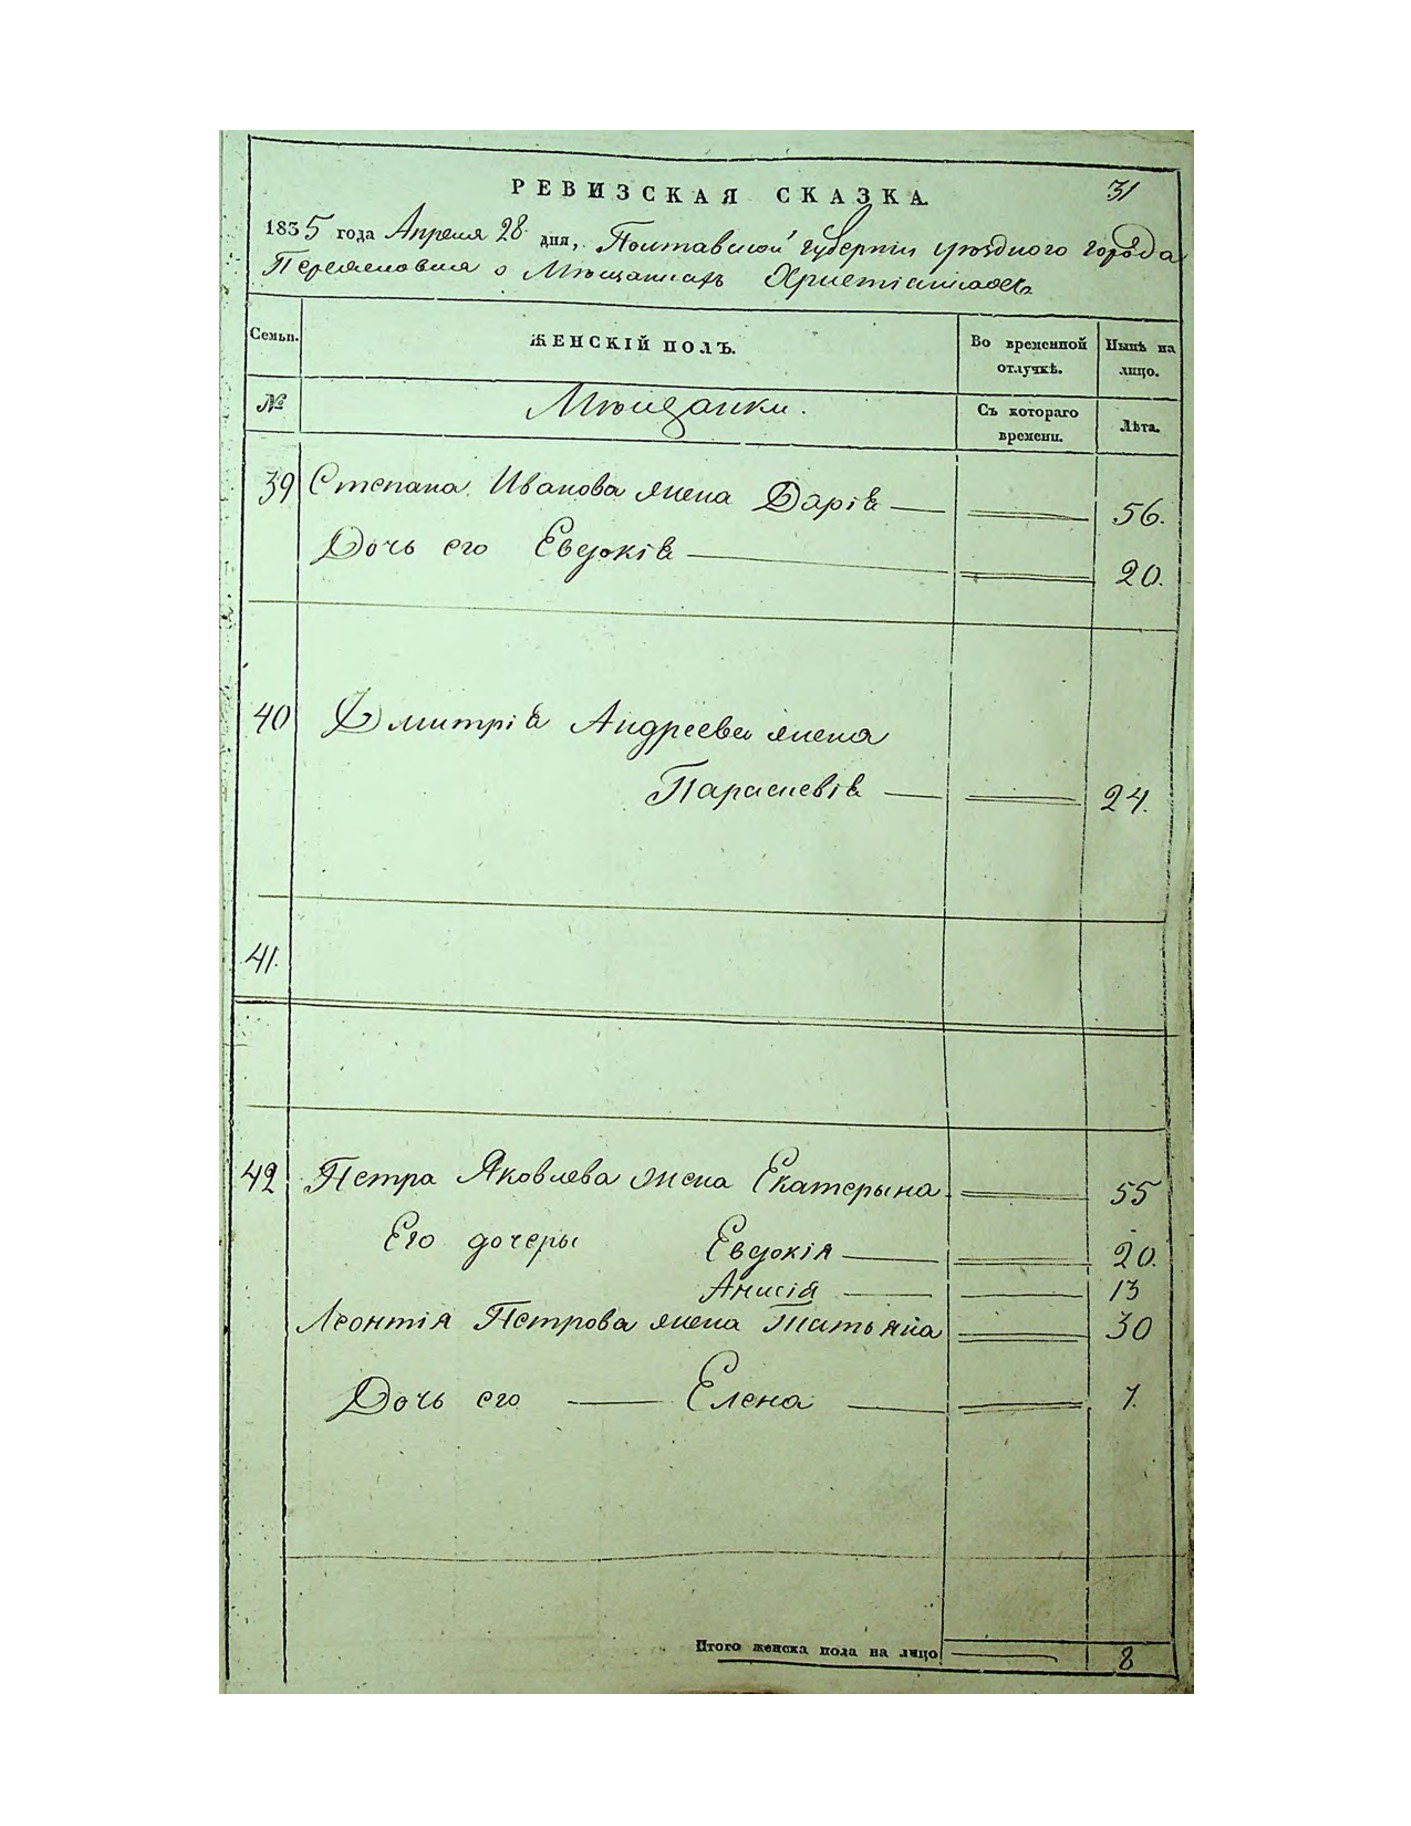 РЕВИЗСКАЯ СКАЗКА.
31
1835 года Апреля 28 дня, Полтавской губернии уѣзднаго города
Переяславля о Мѣщанахъ Христіанахъ
Семьи. ЖЕНСКІЙ ПОЛЪ. Во временной отлучкѣ. Нынѣ на лицо.
№ Мѣщанки. Съ котораго времени. Лѣта.
39 Степана Иванова жена Дарія — 56.
Дочь его Евдокія — 20.
40 Дмитрія Андреева жена
Параскевія — 24.
41.
42 Петра Яковлева жена Екатерына 55
Его дочеры Евдокія — 20.
Анисія — 13
Леонтія Петрова жена Татьяна 30
Дочь его — Елена — 7.
Итого женска пола на лицо — 8